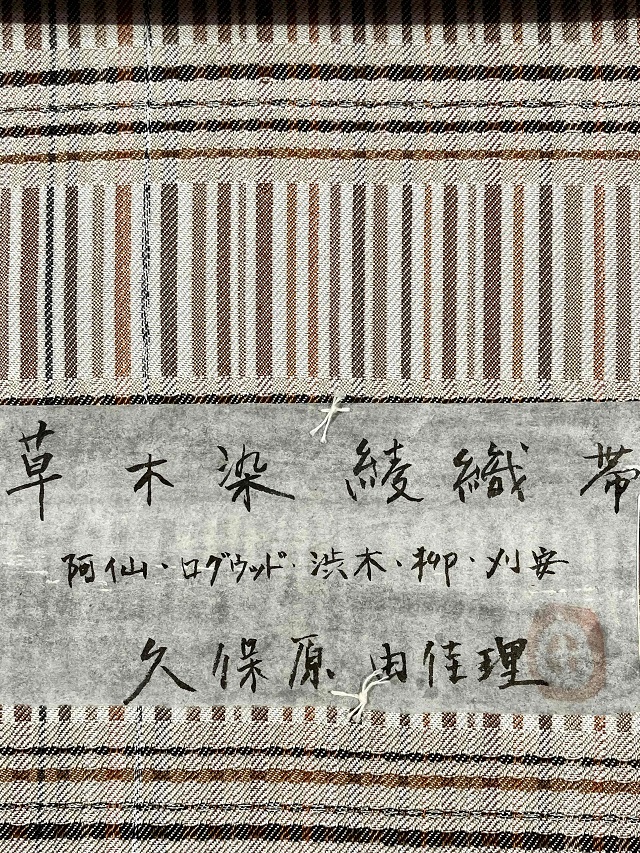 草木染 綾織 帯
阿仙・ログウッド・渋木・柳・刈安
久保原 由佳理